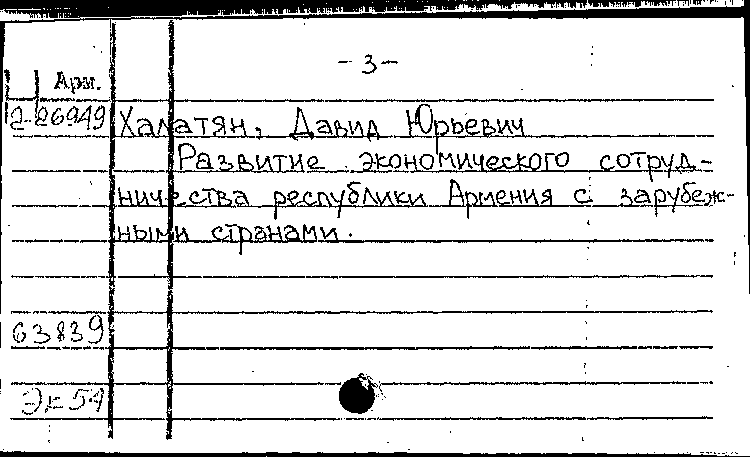 - 3 -
Арм.
2-26949 Халатян, Давид Юрьевич
Развитие экономического сотруд-
ничества республики Армения с зарубеж-
ными странами.
63839
Эк 54